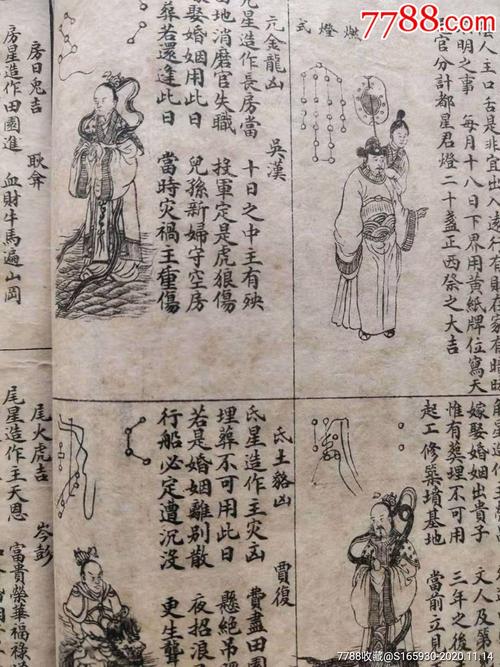 7788.com
燃燈式
人主口舌是非宜出入有財在家有暗
明之事 每月十八日下界用黃紙牌位寫天
官分計都星君燈二十盞正西祭之大吉
亢金龍凶 吳漢
亢星造作長房當 十日之中主有殃
地消磨官失職 投軍定是虎狼傷
娶婚姻用此日 兒孫新婦守空房
葬若還逢此日 當時災禍主重傷
房日兔吉 耿弇
房星造作田園進 血財牛馬遍山岡
嫁娶婚姻出貴子 文人及第
惟有葬埋不可用 三年之後
起工修築墳墓地 當前立見
氐土貉凶 賈復
氐星造作主災凶 費盡田園
埋葬不可用此日 懸繩吊
若是婚姻離別散 夜招浪
行船必定遭沉沒 更生聾
尾火虎吉 岑彭
尾星造作主天恩 富貴榮華福祿
7788收藏@S165930-2020.11.14